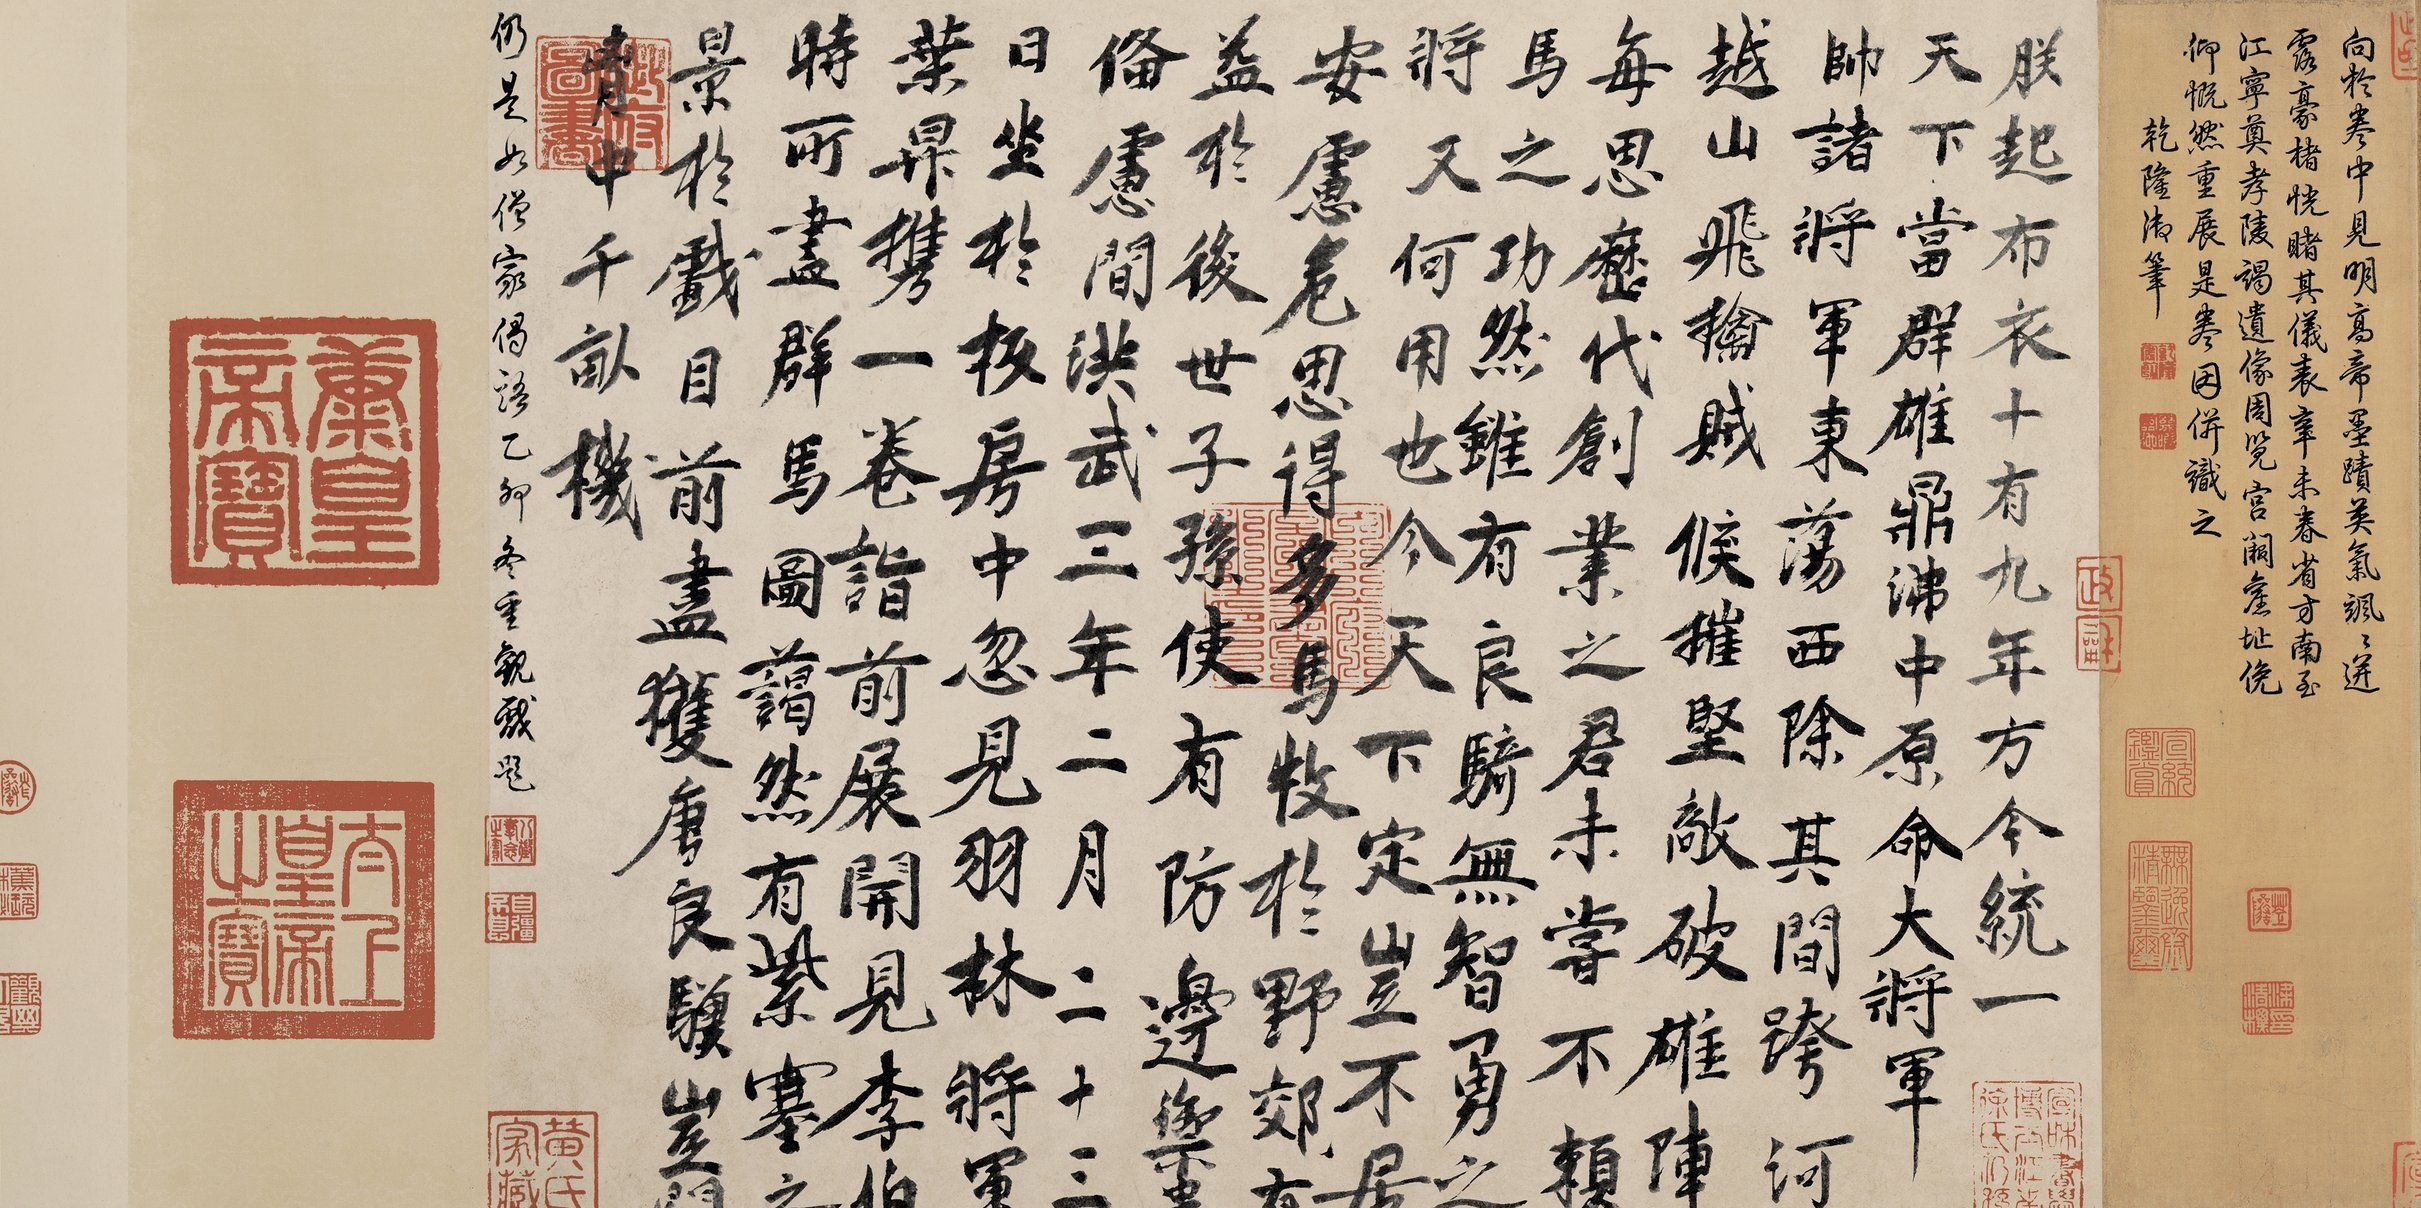 向於卷中見明高帝墨蹟英氣颯〻迸
露豪楮恍睹其儀表辛未春省方南至
江寧奠孝陵謁遺像周覽宮闕舊址俛
仰慨然重展是卷因併識之
乾隆御筆
朕起布衣十有九年方今統一
天下當群雄鼎沸中原命大將軍
帥諸將軍東蕩西除其間跨河
越山飛擒賊候摧堅敵破雄陣
每思歷代創業之君未嘗不賴
馬之功然雖有良騎無智勇之
將又何用也今天下定豈不居
安慮危思得多馬牧於野郊有
益於後世子孫使有防邊禦患
俻慮間洪武三年二月二十三
日坐於板房中忽見羽林將軍
葉昇携一卷詣前展開見李伯
時所畫群馬圖藹然有紫塞之
景於戲目前盡獲唐良驥豈問
胷中千畝機
仍是如僧家偈語乙卯冬重觀戲題
肅皇帝寶
太上皇帝之寶
八徵耄念之寶
自彊不息
宣統鑑賞
無逸齋精鑒璽
黃氏家藏